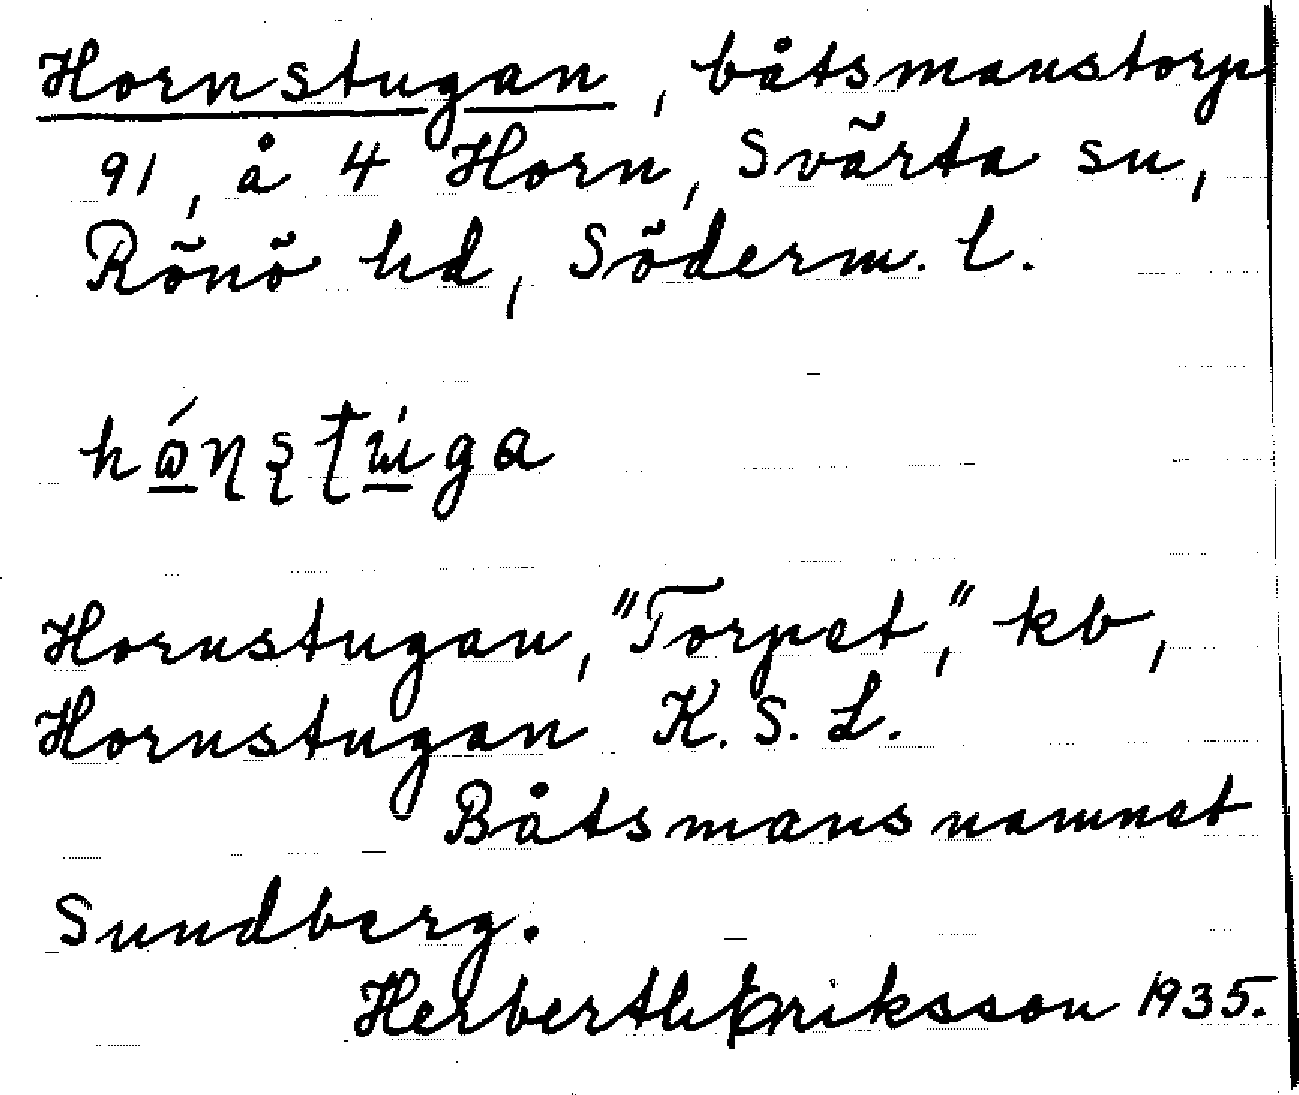 Hornstugan, båtsmanstorp
91, å 4 Horn, Svärta sn,
Rönö hd, Söderm. l.
Hornstugan, "Torpet", kb,
Hornstugan K. S. L.
Båtsmansnamnet
Sundberg.
Herbert Eriksson 1935.